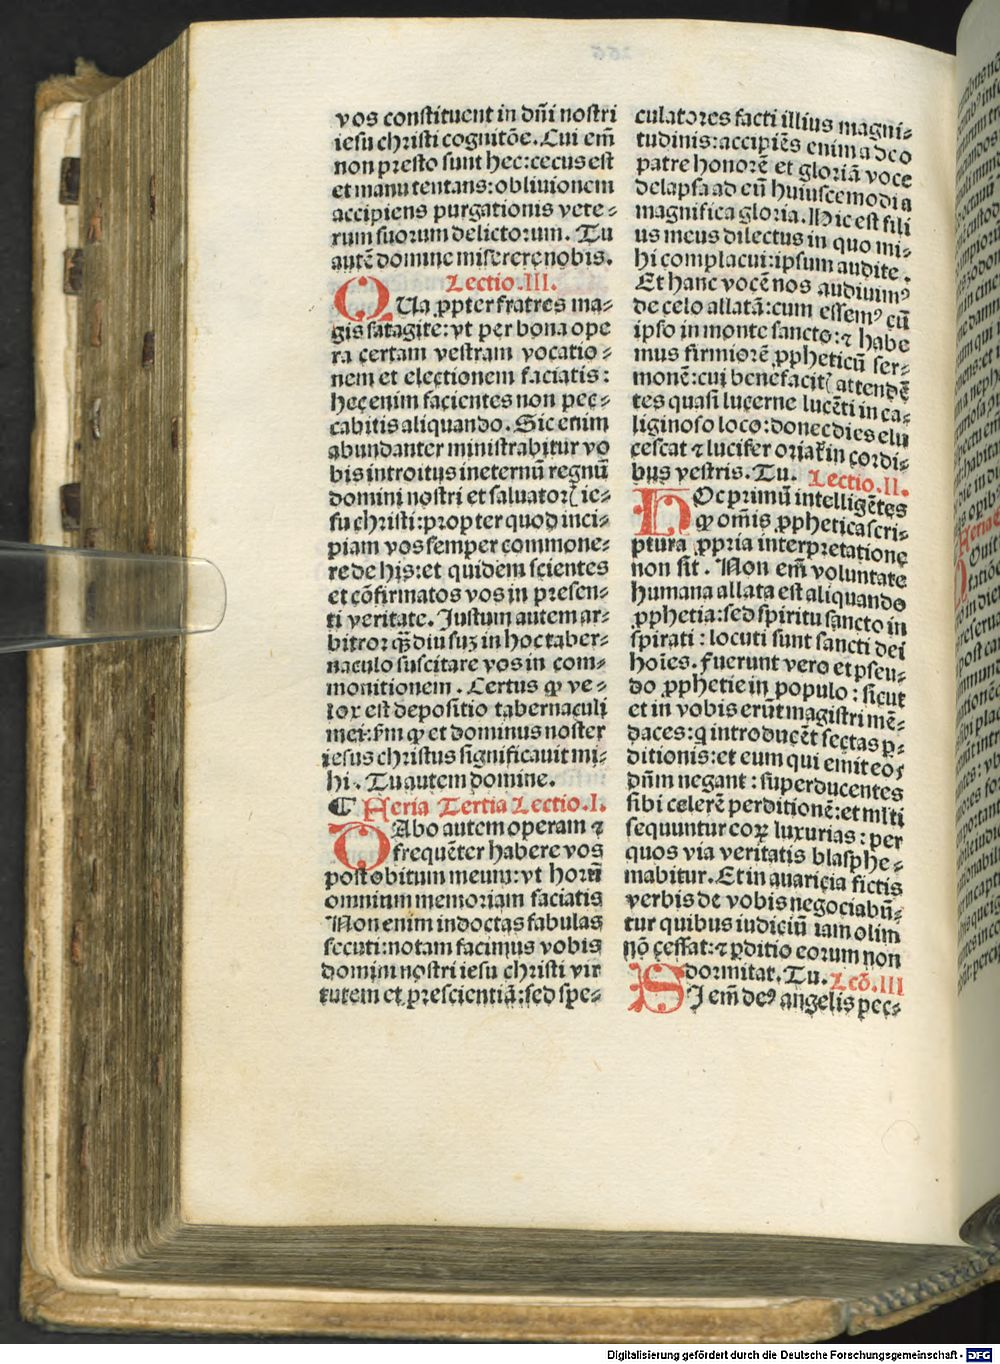 vos constituent in dñi nostri
iesu christi cognitõe. Cui em̃
non presto sunt hec: cecus est
et manu tentans: obliuionem
accipiens purgationis vete⸗
rum suorum delictorum. Tu
autẽ domine miserere nobis.
Lectio .III.
QUa ꝓpter fratres ma⸗
gis satagite: vt per bona ope
ra certam vestram vocatio⸗
nem et electionem faciatis:
hec enim facientes non pec⸗
cabitis aliquando. Sic enim
abundanter ministrabitur vo
bis introitus in eternũ regnũ
domini nostri et saluatorꝭ ie⸗
su christi: propter quod inci⸗
piam vos semper commone⸗
re de his: et quidem scientes
et cõfirmatos vos in presen⸗
ti veritate. Justum autem ar⸗
bitror ꝗ̃diu suꝫ in hoc taber⸗
naculo suscitare vos in com⸗
monitionem. Certus ꝙ ve⸗
lox est depositio tabernaculi
mei: ẜm ꝙ et dominus noster
iesus christus significauit mi⸗
hi. Tu autem domine.
¶ Feria Tertia Lectio .I.
DAbo autem operam ⁊
frequẽter habere vos
post obitum meum: vt horũ
omnium memoriam faciatis
Non enim indoctas fabulas
secuti: notam facimus vobis
domini nostri iesu christi vir
tutem et prescientiã: sed spe⸗
culatores facti illius magni⸗
tudinis: accipiẽs enim a deo
patre honorẽ et gloriã voce
delapsa ad eũ huiuscemodi a
magnifica gloria. Hic est fili
us meus dilectus in quo mi⸗
hi complacui: ipsum audite.
Et hanc vocẽ nos audiuimꝰ
de celo allatã: cum essemꝰ cũ
ipso in monte sancto: ⁊ habe
mus firmiorẽ ꝓpheticũ ser⸗
monẽ: cui benefacitꝭ attendẽ
tes quasi lucerne lucẽti in ca⸗
liginoso loco: donec dies elu
cescat ⁊ lucifer oriat᷑ in cordi⸗
bus vestris. Tu. Lectio .II.
HOc primũ intelligẽtes
ꝙ om̃is ꝓphetica scri⸗
ptura ꝓpria interpretatione
non fit. Non em̃ voluntate
humana allata est aliquando
ꝓphetia: sed spiritu sancto in
spirati: locuti sunt sancti dei
hoĩes. fuerunt vero et pseu⸗
do ꝓphetie in populo: sicut
et in vobis erũt magistri mẽ⸗
daces: q introducẽt sectas ꝑ⸗
ditionis: et eum qui emit eos
dñm negant: superducentes
sibi celerẽ perditionẽ: et ml̃ti
sequuntur eoꝝ luxurias: per
quos via veritatis blasphe⸗
mabitur. Et in auaricia fictis
verbis de vobis negociabũ⸗
tur quibus iudiciũ iam olim
nõ cessat: ⁊ ꝑditio eorum non
dormitat. Tu. Lcõ. III
SI em̃ deꝰ angelis pec⸗
Digitalisierung gefördert durch die Deutsche Forschungsgemeinschaft - DFG